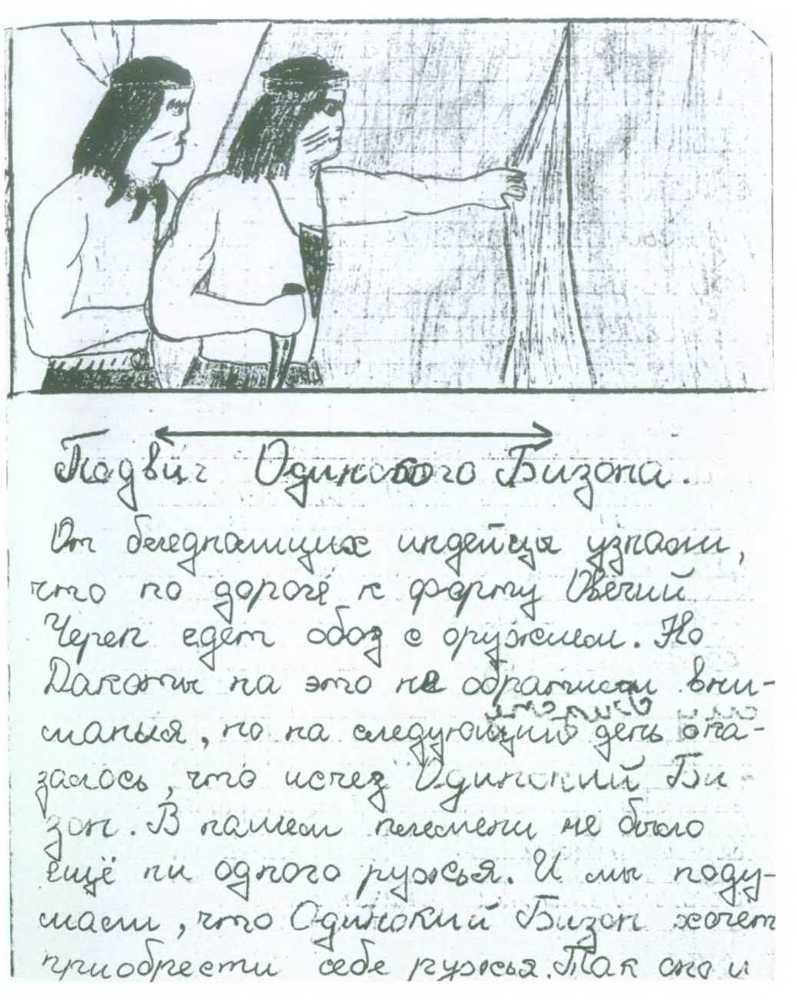 Подвиг Одинокого Бизона.
От бледнолицых индейцы узнали,
что по дороге к форту Овечий
Череп едет обоз с оружием. Но
Дакоты на это не обратили вни-
манья, но на следующий день ока-
залось, что исчез Одинокий Би
зон. В нашем племени не было
ещё ни одного ружья. И мы поду-
мали, что Одинокий Бизон хочет
приобрести себе ружья. Так оно и